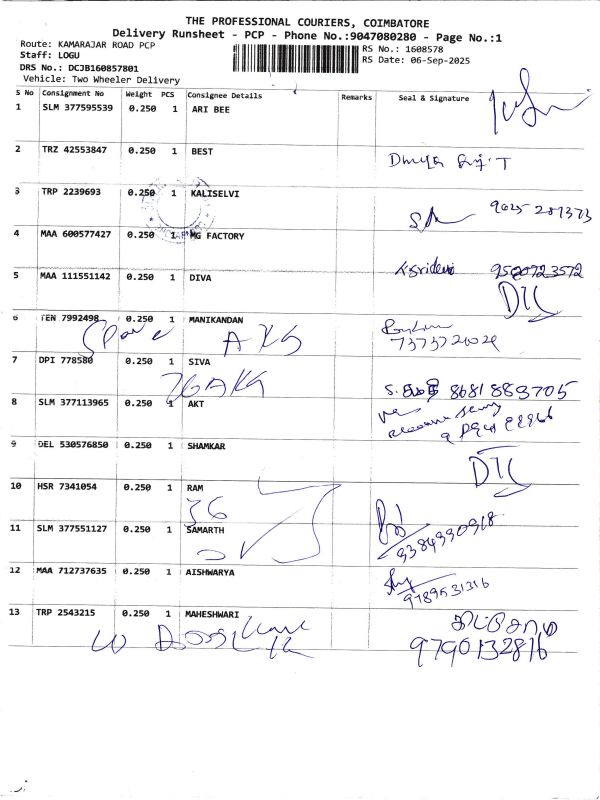 THE PROFESSIONAL COURIERS, COIMBATORE
Delivery Runsheet - PCP - Phone No.:9047080280 - Page No.:1
Route: KAMARAJAR ROAD PCP
Staff: LOGU
DRS No.: DCJB160857801
Vehicle: Two Wheeler Delivery
RS No.: 1608578
RS Date: 06-Sep-2025
S No Consignment No Weight PCS Consignee Details Remarks Seal & Signature
1 SLM 377595539 0.250 1 ARI BEE
2 TRZ 42553847 0.250 1 BEST
3 TRP 2239693 0.250 1 KALISELVI
4 MAA 600577427 0.250 1 MG FACTORY
5 MAA 111551142 0.250 1 DIVA
K Sridevi 9500723572
DTC
6 TEN 7992498 0.250 1 MANIKANDAN
AKS
7373720024
7 DPI 778580 0.250 1 SIVA
8681883705
8 SLM 377113965 0.250 1 AKT
9 DEL 530576850 0.250 1 SHAMKAR
DTC
10 HSR 7341054 0.250 1 RAM
36
9384990918
11 SLM 377551127 0.250 1 SAMARTH
12 MAA 712737635 0.250 1 AISHWARYA
9789531316
13 TRP 2543215 0.250 1 MAHESHWARI
9790132816